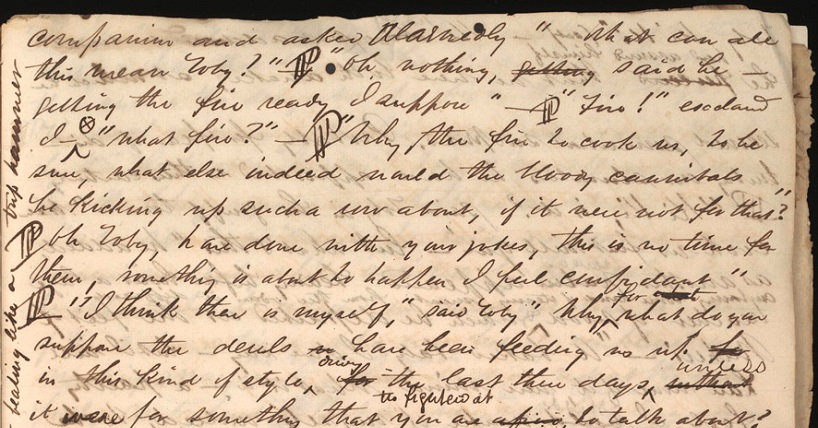 companion and asked alarmedly "what can all
this mean Toby?" "oh, nothing, getting said he —
getting the fire ready I suppose" — "Fire!" exclaimd
I — ⊗ "what fire?" — "Why, the fire to cook us, to be
sure, what else indeed would the bloody cannibals
be kicking up such a row about, if it were not for that?"
oh Toby, have done with your jokes, this is no time for
them, something is about to happen I feel confidant"
"I think there is myself," said Toby "Why, what do you
suppose the devils have been feeding us up
in this kind of style, during for the last three days, unless
it were for something that you are to frightend at to talk about?
beating like a trip hammer